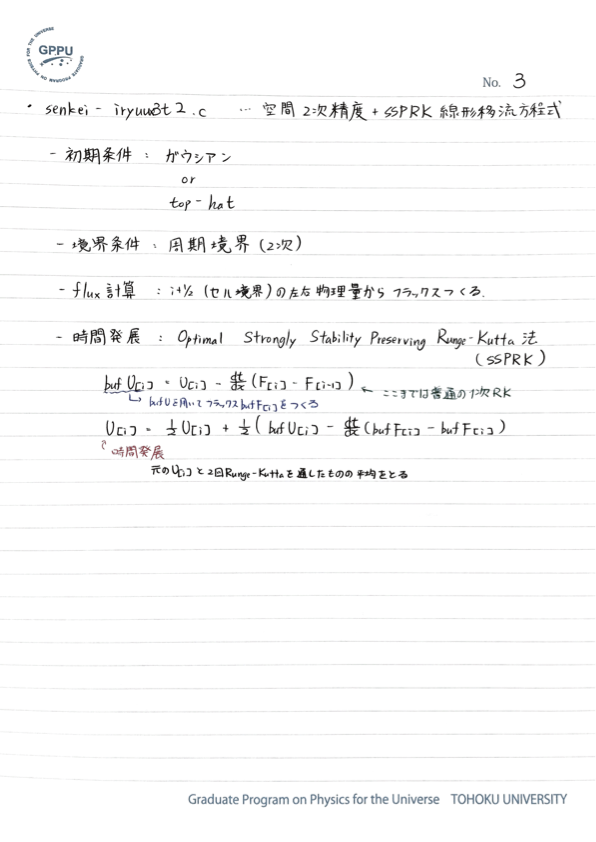 GRADUATE PROGRAM ON PHYSICS FOR THE UNIVERSE
GPPU
No. 3
・ senkei - iryuu3t2.c … 空間2次精度 + SSPRK 線形移流方程式
- 初期条件 : ガウシアン
or
top-hat
- 境界条件 : 周期境界 (2次)
- flux計算 : i+1/2 (セル境界) の左右物理量から フラックスつくる.
- 時間発展 : Optimal Strongly Stability Preserving Runge-Kutta 法
(SSPRK)
buf U[i] = U[i] - (F[i] - F[i-1]) ← ここまでは普通の1次RK
↳ bufUを用いてフラックスbufF[i]をつくる
U[i] = 1/2 U[i] + 1/2 ( buf U[i] - (buf F[i] - buf F[i])
↑時間発展
元のU[i]と2回Runge-Kuttaを通したものの平均をとる
Graduate Program on Physics for the Universe TOHOKU UNIVERSITY